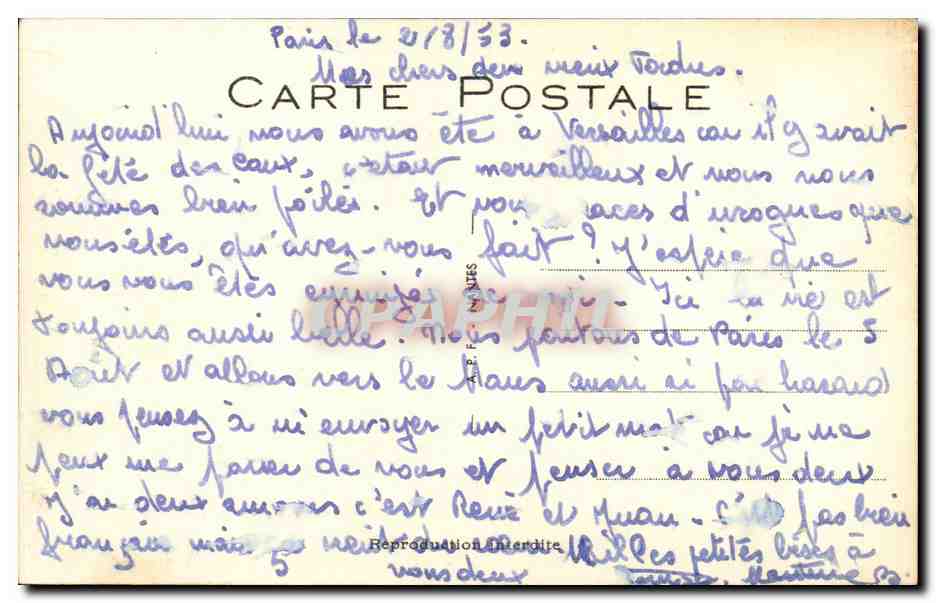 Paris le 2/8/53.
Mes chers deux vieux Tordus.
CARTE POSTALE
Aujourd'hui nous avons été à Versailles car il y avait
la fété des Eaux, c'etait merveilleux et nous nous
sommes bien . Et vous d'ivrognes que
vous étés, qu'avez-vous fait ? J'espère que
vous vous étés . Ici la vie est
toujours aussi belle. Nous partons de Paris le 5
Août et allons vers le Mans aussi si par hasard
vous pensez à m'envoyer un petit mot car je ne
peux me passer de vous et penser à vous deux
J'ai deux amours c'est René et Juan - pas bien
français mais Milles petites bises à
vous deux
A.P.F. - NANTES
Reproduction Interdite
CPAPHIL